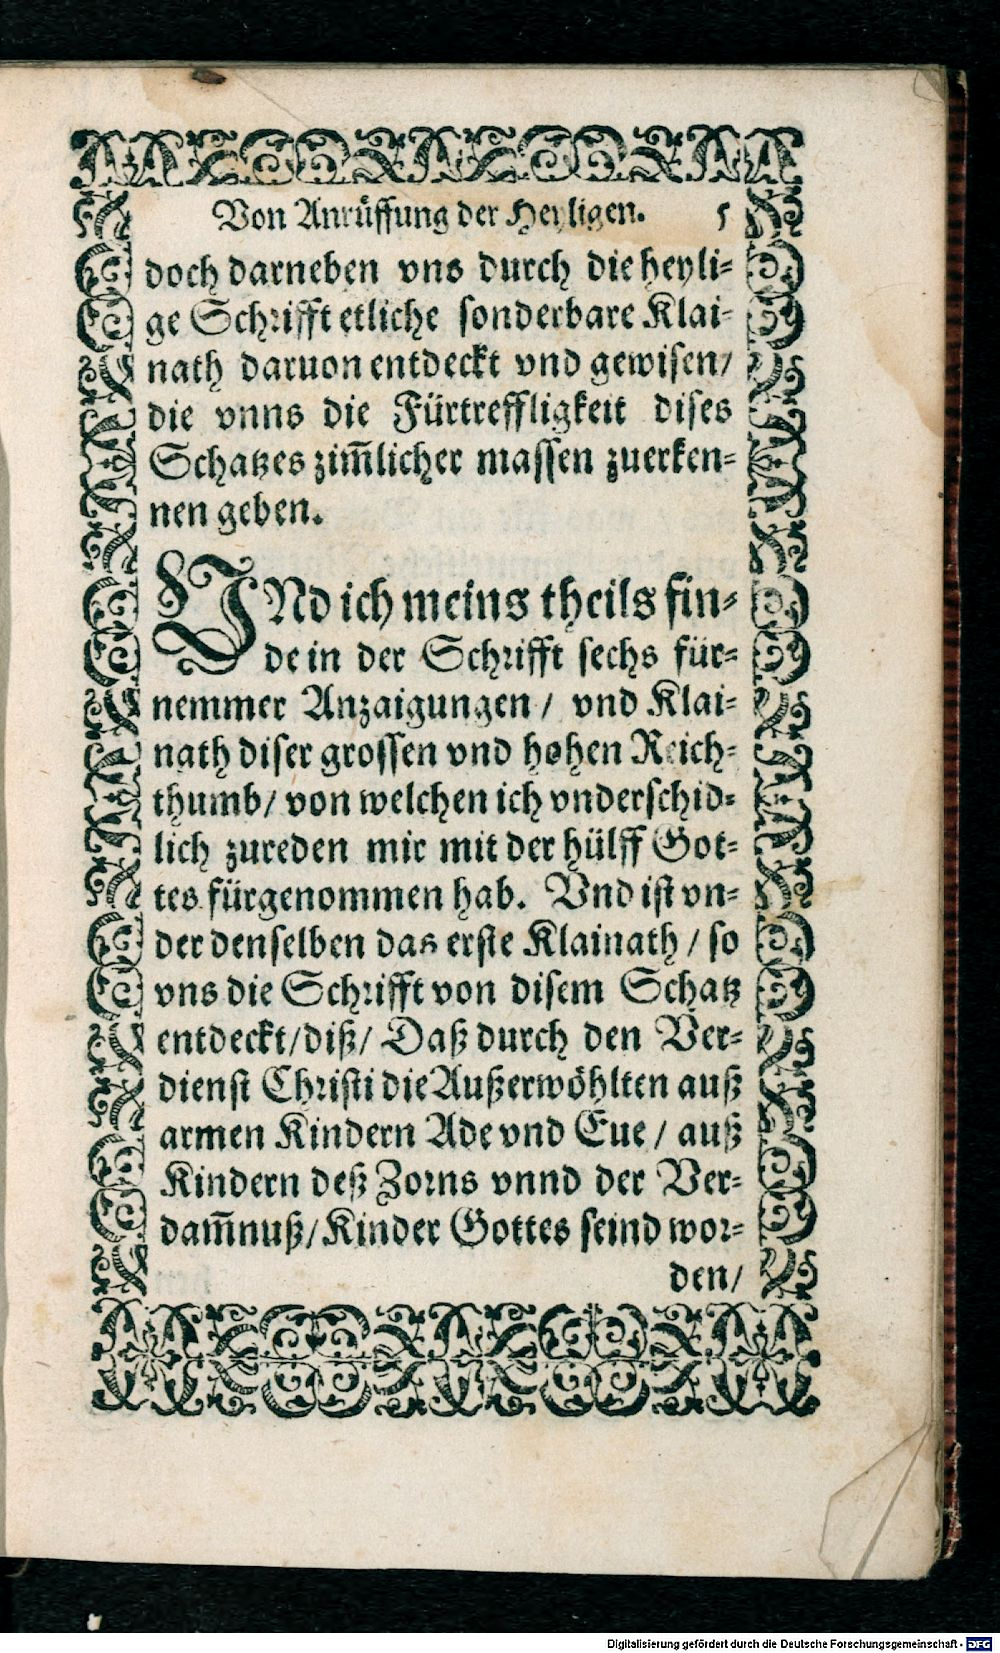 Von Anrüffung der Heyligen. 5
doch darneben vns durch die heyli-
ge Schrifft etliche sonderbare Klai-
nath daruon entdeckt vnd gewisen/
die vnns die Fürtreffligkeit dises
Schatzes zim̃licher massen zuerken-
nen geben.
VNd ich meins theils fin-
de in der Schrifft sechs für-
nemmer Anzaigungen / vnd Klai-
nath diser grossen vnd hohen Reich-
thumb/ von welchen ich vnderschid-
lich zureden mir mit der hülff Got-
tes fürgenommen hab. Vnd ist vn-
der denselben das erste Klainath / so
vns die Schrifft von disem Schatz
entdeckt/diß/ Daß durch den Ver-
dienst Christi die Außerwöhlten auß
armen Kindern Ade vnd Eue / auß
Kindern deß Zorns vnnd der Ver-
dam̃nuß/Kinder Gottes seind wor-
den/
Digitalisierung gefördert durch die Deutsche Forschungsgemeinschaft - DFG